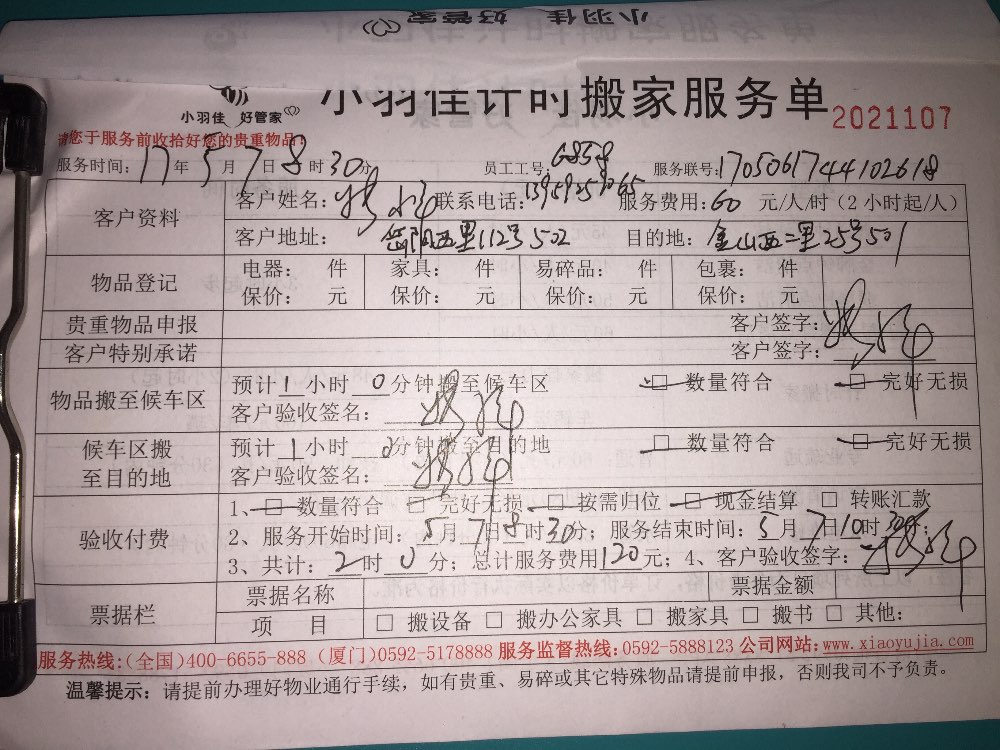 小羽佳 好管家
小羽佳 好管家 小羽佳计时搬家服务单 2021107
请您于服务前收拾好您的贵重物品!
服务时间: 17年 5月 7日 8时 30分 员工工号: 6858 服务联号: 1705061744102618
客户资料 客户姓名: 联系电话: 服务费用: 60 元/人/时 (2小时起/人)
客户地址: 岳阳西里112号502 目的地: 金山西二里25号501
物品登记 电器: 件 家具: 件 易碎品: 件 包裹: 件
保价: 元 保价: 元 保价: 元 保价: 元
贵重物品申报 客户签字:
客户特别承诺 客户签字:
物品搬至候车区 预计1小时 0分钟搬至候车区 □ 数量符合 □ 完好无损
客户验收签名:
候车区搬至目的地 预计1小时 0分钟搬至目的地 □ 数量符合 □ 完好无损
客户验收签名:
验收付费 1、□ 数量符合 □ 完好无损 □ 按需归位 □ 现金结算 □ 转账汇款
2、服务开始时间: 5月 7日 8时 30分; 服务结束时间: 5月 7日 10时 30分;
3、共计: 2时 0分; 总计服务费用120元; 4、客户验收签字:
票据栏 票据名称 票据金额
项 目 □ 搬设备 □ 搬办公家具 □ 搬家具 □ 搬书 □ 其他:
服务热线:(全国)400-6655-888 (厦门)0592-5178888 服务监督热线:0592-5888123 公司网站:www.xiaoyujia.com
温馨提示: 请提前办理好物业通行手续, 如有贵重、易碎或其它特殊物品请提前申报, 否则我司不予负责。